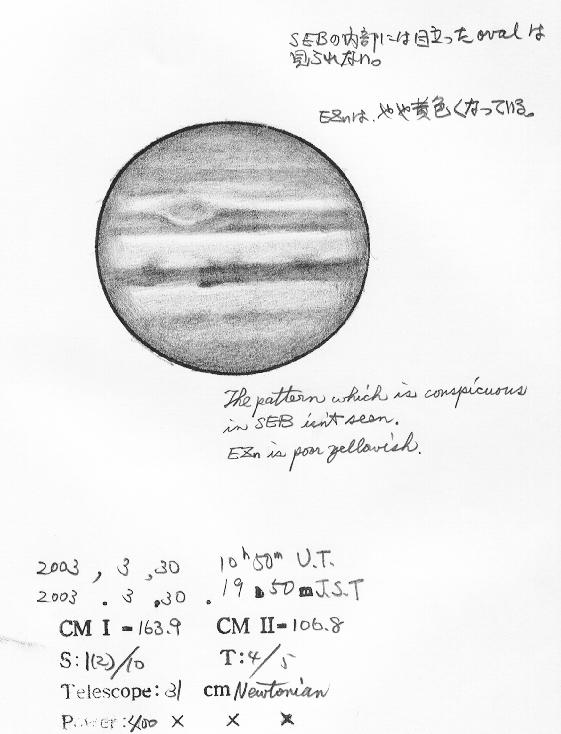 SEBの内部には目立ったovalは
見られない。
EZnは、やや黄色くなっている。
The pattern which is conspicuous
in SEB isn't seen.
EZn is poor yellowish.
2003 , 3 , 30 10h 50m U.T.
2003 . 3 . 30 . 19 h 50 m J.S.T
CM I = 163.9 CM II = 106.8
S: 1(2)/10 T: 4/5
Telescope: 31 cm Newtonian
Power: 400 × × ×